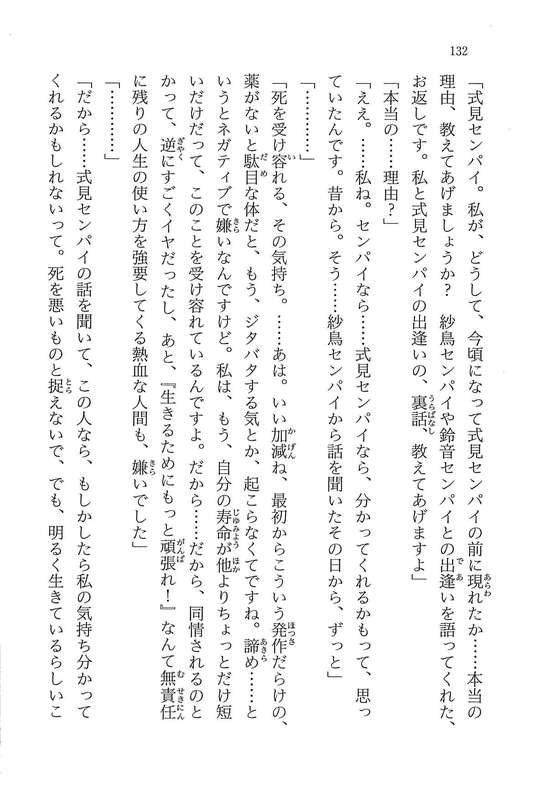 132
「式見センパイ。私が、どうして、今頃になって式見センパイの前に現れたか……本当の
理由、教えてあげましょうか？　紗鳥センパイや鈴音センパイとの出逢いを語ってくれた、
お返しです。私と式見センパイの出逢いの、裏話、教えてあげますよ」
「本当の……理由？」
「ええ。……私ね。センパイなら……式見センパイなら、分かってくれるかもって、思っ
ていたんです。昔から。そう……紗鳥センパイから話を聞いたその日から、ずっと」
「…………」
「死を受け容れる、その気持ち。……あは。いい加減ね、最初からこういう発作だらけの、
薬がないと駄目な体だと、もう、ジタバタする気とか、起こらなくてですね。諦め……と
いうとネガティブで嫌いなんですけど。私は、もう、自分の寿命が他よりちょっとだけ短
いだけだって、このことを受け容れているんですよ。だから……だから、同情されるのと
かって、逆にすごくイヤだったし、あと、『生きるためにもっと頑張れ！』なんて無責任
に残りの人生の使い方を強要してくる熱血な人間も、嫌いでした」
「…………」
「だから……式見センパイの話を聞いて、この人なら、もしかしたら私の気持ち分かって
くれるかもしれないって。死を悪いものと捉えないで、でも、明るく生きているらしいこ